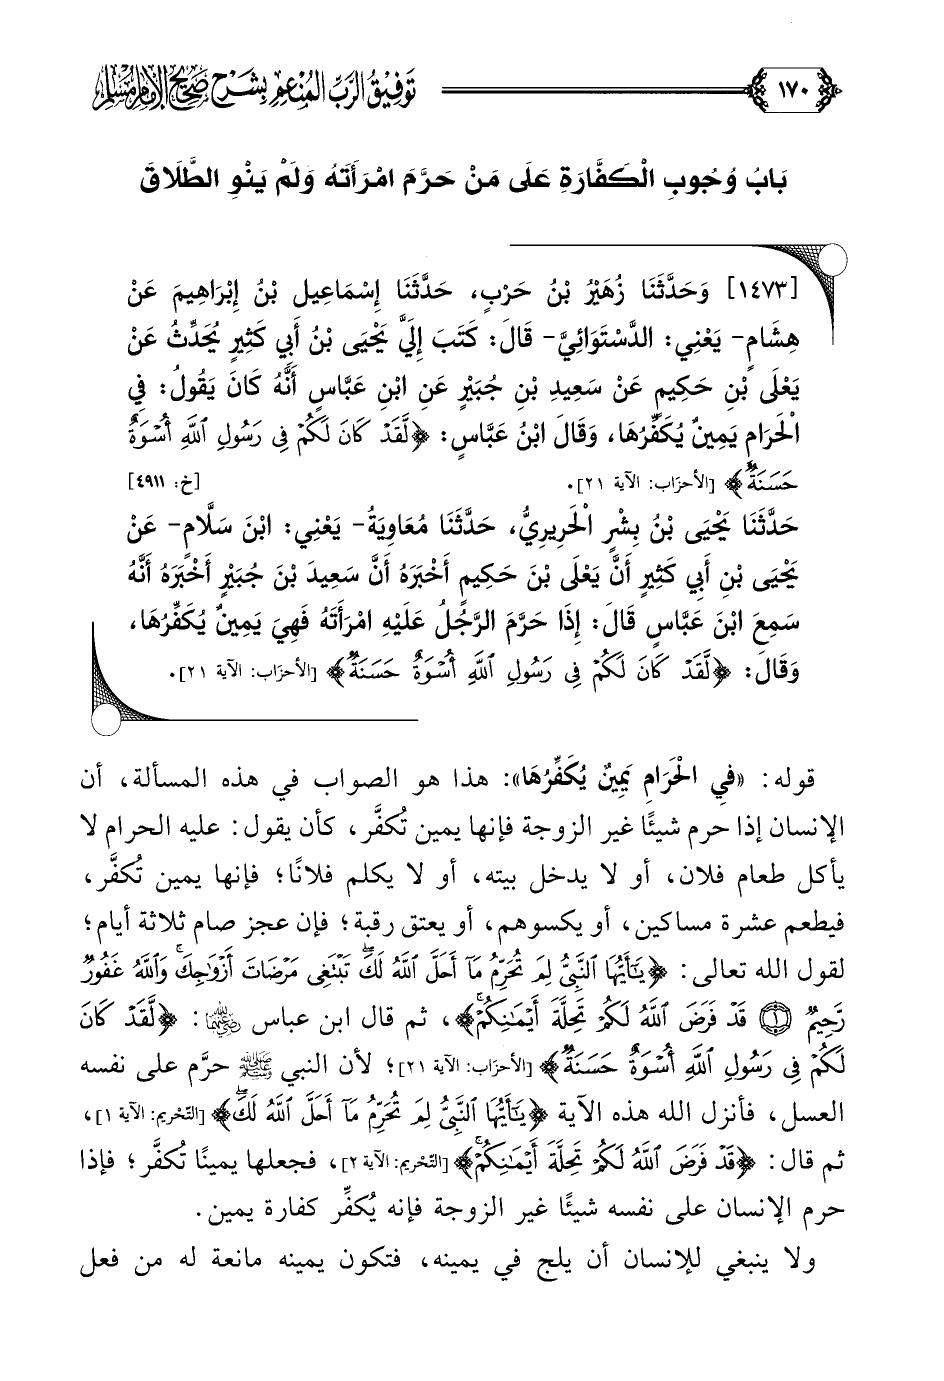 ١٧٠
توفيق الرب المنعم بشرح صحيح الإمام مسلم
بَابُ وُجُوبِ الْكَفَّارَةِ عَلَى مَنْ حَرَّمَ امْرَأَتَهُ وَلَمْ يَنْوِ الطَّلَاقَ
[١٤٧٣] وَحَدَّثَنَا زُهَيْرُ بْنُ حَرْبٍ، حَدَّثَنَا إِسْمَاعِيل بْنُ إِبْرَاهِيمَ عَنْ
هِشَامٍ- يَعْنِي: الدَّسْتَوَائِيَّ- قَالَ: كَتَبَ إِلَيَّ يَحْيَى بْنُ أَبِي كَثِيرٍ يُحَدِّثُ عَنْ
يَعْلَى بْنِ حَكِيمٍ عَنْ سَعِيدِ بْنِ جُبَيْرٍ عَنِ ابْنِ عَبَّاسٍ أَنَّهُ كَانَ يَقُولُ: فِي
الْحَرَامِ يَمِينٌ يُكَفِّرُهَا، وَقَالَ ابْنُ عَبَّاسٍ: ﴿لَّقَدْ كَانَ لَكُمْ فِى رَسُولِ ٱللَّهِ أُسْوَةٌ
حَسَنَةٌ﴾ [الأحزاب: الآية ٢١]. [خ: ٤٩١١]
حَدَّثَنَا يَحْيَى بْنُ بِشْرٍ الْحَرِيرِيُّ، حَدَّثَنَا مُعَاوِيَةُ- يَعْنِي: ابْنَ سَلَّامٍ- عَنْ
يَحْيَى بْنِ أَبِي كَثِيرٍ أَنَّ يَعْلَى بْنَ حَكِيمٍ أَخْبَرَهُ أَنَّ سَعِيدَ بْنَ جُبَيْرٍ أَخْبَرَهُ أَنَّهُ
سَمِعَ ابْنَ عَبَّاسٍ قَالَ: إِذَا حَرَّمَ الرَّجُلُ عَلَيْهِ امْرَأَتَهُ فَهِيَ يَمِينٌ يُكَفِّرُهَا،
وَقَالَ: ﴿لَّقَدْ كَانَ لَكُمْ فِى رَسُولِ ٱللَّهِ أُسْوَةٌ حَسَنَةٌ﴾ [الأحزاب: الآية ٢١].
قوله: «فِي الْحَرَامِ يَمِينٌ يُكَفِّرُهَا»: هذا هو الصواب في هذه المسألة، أن
الإنسان إذا حرم شيئًا غير الزوجة فإنها يمين تُكفَّر، كأن يقول: عليه الحرام لا
يأكل طعام فلان، أو لا يدخل بيته، أو لا يكلم فلانًا؛ فإنها يمين تُكفَّر،
فيطعم عشرة مساكين، أو يكسوهم، أو يعتق رقبة؛ فإن عجز صام ثلاثة أيام؛
لقول الله تعالى: ﴿يَٰٓأَيُّهَا ٱلنَّبِىُّ لِمَ تُحَرِّمُ مَآ أَحَلَّ ٱللَّهُ لَكَ ۖ تَبْتَغِى مَرْضَاتَ أَزْوَٰجِكَ ۚ وَٱللَّهُ غَفُورٌ
رَّحِيمٌ ۝١ قَدْ فَرَضَ ٱللَّهُ لَكُمْ تَحِلَّةَ أَيْمَٰنِكُمْ ۚ﴾، ثم قال ابن عباس رضي الله عنهما: ﴿لَّقَدْ كَانَ
لَكُمْ فِى رَسُولِ ٱللَّهِ أُسْوَةٌ حَسَنَةٌ﴾ [الأحزاب: الآية ٢١]؛ لأن النبي ﷺ حرَّم على نفسه
العسل، فأنزل الله هذه الآية ﴿يَٰٓأَيُّهَا ٱلنَّبِىُّ لِمَ تُحَرِّمُ مَآ أَحَلَّ ٱللَّهُ لَكَ ۖ﴾ [التّحريم: الآية ١]،
ثم قال: ﴿قَدْ فَرَضَ ٱللَّهُ لَكُمْ تَحِلَّةَ أَيْمَٰنِكُمْ ۚ﴾ [التّحريم: الآية ٢]، فجعلها يمينًا تُكفَّر؛ فإذا
حرم الإنسان على نفسه شيئًا غير الزوجة فإنه يُكفِّر كفارة يمين.
ولا ينبغي للإنسان أن يلج في يمينه، فتكون يمينه مانعة له من فعل